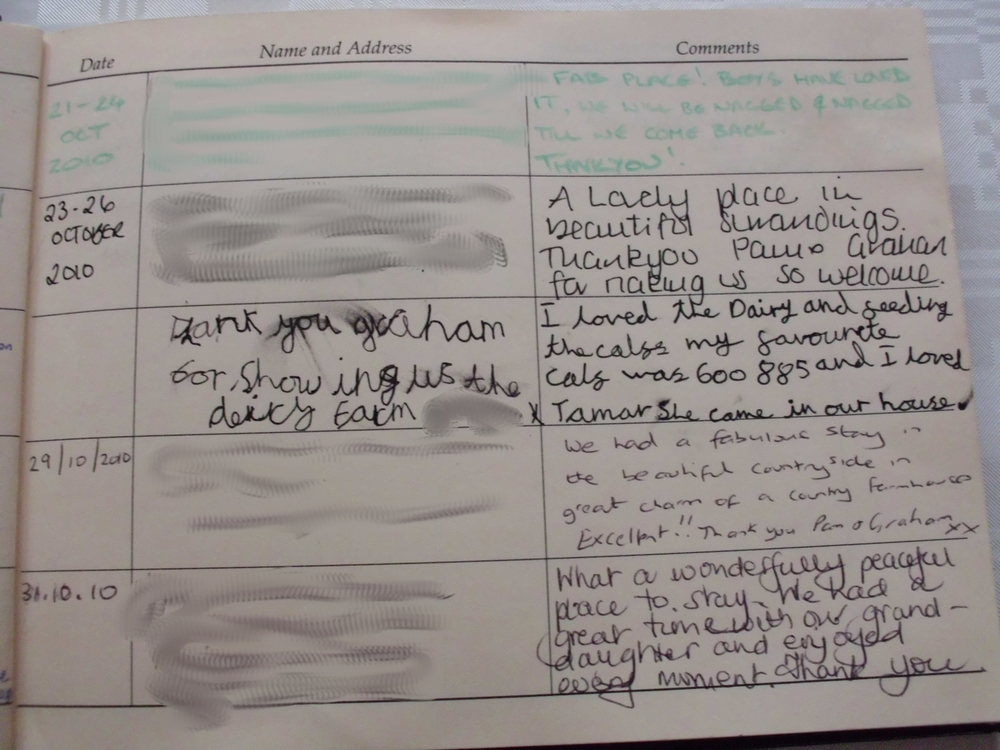 Date Name and Address Comments
21-24
OCT
2010
FAB PLACE! BOYS HAVE LOVED
IT, WE WILL BE NAGGED & NAGGED
TILL WE COME BACK.
THANKYOU!
23-26
OCTOBER
2010
A Lovely place in
beautiful
Thankyou Pam + Graham
for making us so welcome.
Thank you graham
for showing us the
deiry farm x
I loved the Dairy and feeding
the calfs my favourete
calf was 600 885 and I loved
Tamar She came in our house.
29/10/2010
We had a fabulous stay in
the beautiful countryside in
great charm of a country farmhouse
Excellent!! Thank you Pam & Graham xx
31.10.10
What a wonderfully peaceful
place to stay. We had a
great time with our grand-
daughter and enjoyed
every moment. Thank you